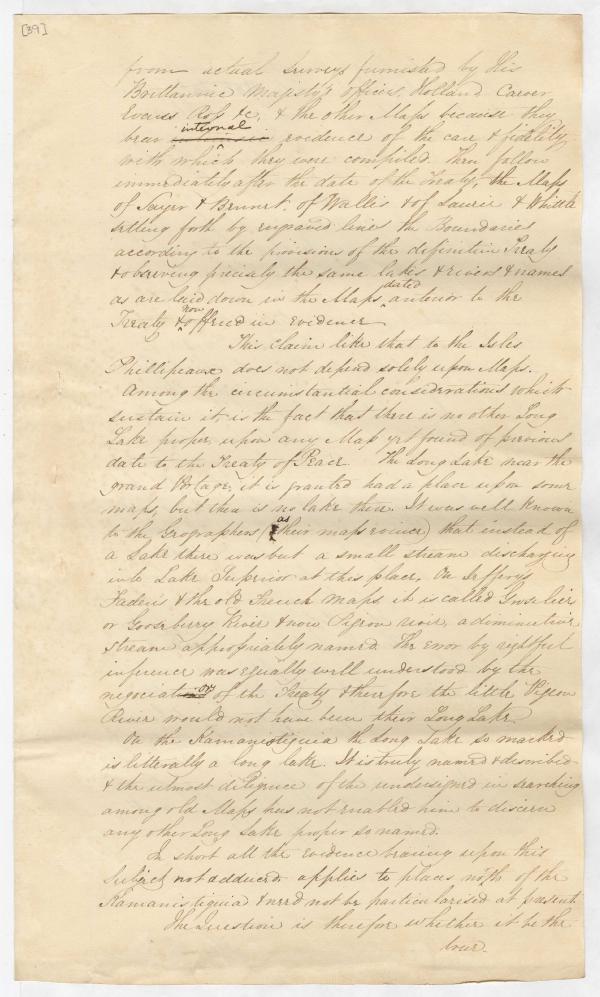 [39]
from actual surveys furnished by His
Brittannic Majesty's officers, Holland Carver
Evans Ross &c, & the other Maps because they
bear intrinsic internal evidence of the care & fidelity
with which they were compiled. Then follow
immediately after the date of the Treaty, the Maps
of Sayer & Bennet, of Wallis & of Laurie & Whittle
setting forth by engraved lines the Boundaries
according to the provisions of the definitive Treaty
& observing precisely the same lakes & rivers & names
as are laid down in the Maps dated anterior to the
Treaty & now offered in evidence
This claim like that to the Isles
Phillipeaux does not depend solely upon Maps.
Among the circumstantial considerations which
sustain it, is the fact that there is no other Long
Lake proper, upon any Map yet found of previous
date to the Treaty of Peace. The Long Lake near the
grand Portage, it is granted had a place upon some
maps, but there is no lake there. It was well known
to the Geographers (as their maps evince) that instead of
a Lake there was but a small stream discharging
into Lake Superior at this place. On Jefferys
Faden's & the old French maps it is called Groselier
or Gooseberry River & now Pigeon river, a diminutive
stream appropriately named. The error by rightful
inference was equally well understood by the
negociators of the Treaty & therefore the little Pigeon
River would not have been their Long Lake.
On the Kamanistiquia the Long Lake so marked
is litterally a long lake. It is truly named & described
& the utmost diligence of the undersigned in searching
among old Maps has not enabled him to discern
any other Long Lake proper so named.
In short all the evidence bearing upon this
Subject not adduced applies to places north of the
Kamanistiquia & need not be particularised at present
The Question is therefore whether it be the
true